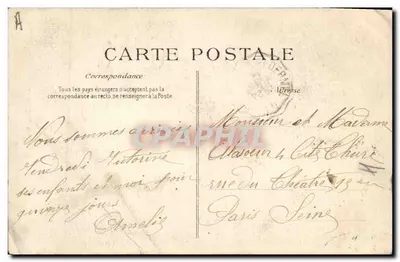 A
CARTE POSTALE
Correspondance
Tous les pays étrangers n'acceptent pas la
correspondance au recto, se renseigner à la Poste.
Adresse
Nous sommes arrivés
Vendredi Victorine
ses enfants et moi pour
quinze jours
Amélie
Monsieur et Madame
4 Cité
rue du Théâtre 15
Paris Seine
CPAPHIL.COM